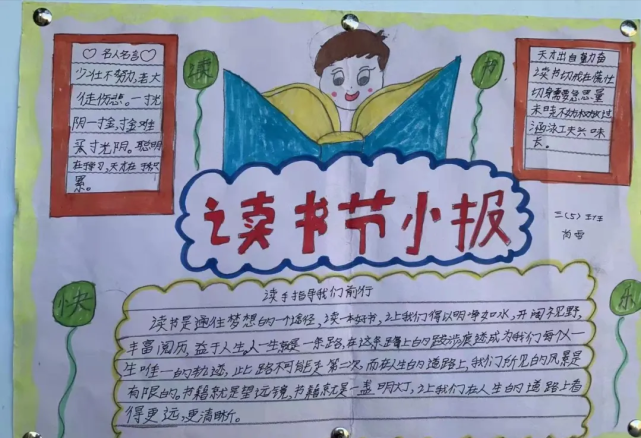 名人名言
少壮不努力,老大
徒伤悲。一寸光
阴一寸金,寸金难
买寸光阴。聪明
在学习,天才在于积
累。
读
书
天才出自勤奋
读书切戒在慌忙
涵泳工夫兴味
长。
读书节小报
三(5)班
快
乐
读书指导我们前行
读书是通往梦想的一个途径,读一本好书,让我们得以明净如水,开阔视野,
丰富阅历,益于人生。人一生就是一条路,在这条路上的跋涉痕迹成为我们每个人一
生唯一的轨迹,此路不可能走第二次,而在人生的道路上,我们所见的风景是
有限的。书籍就是望远镜,书籍就是一盏明灯,让我们在人生的道路上看
得更远,更清晰。